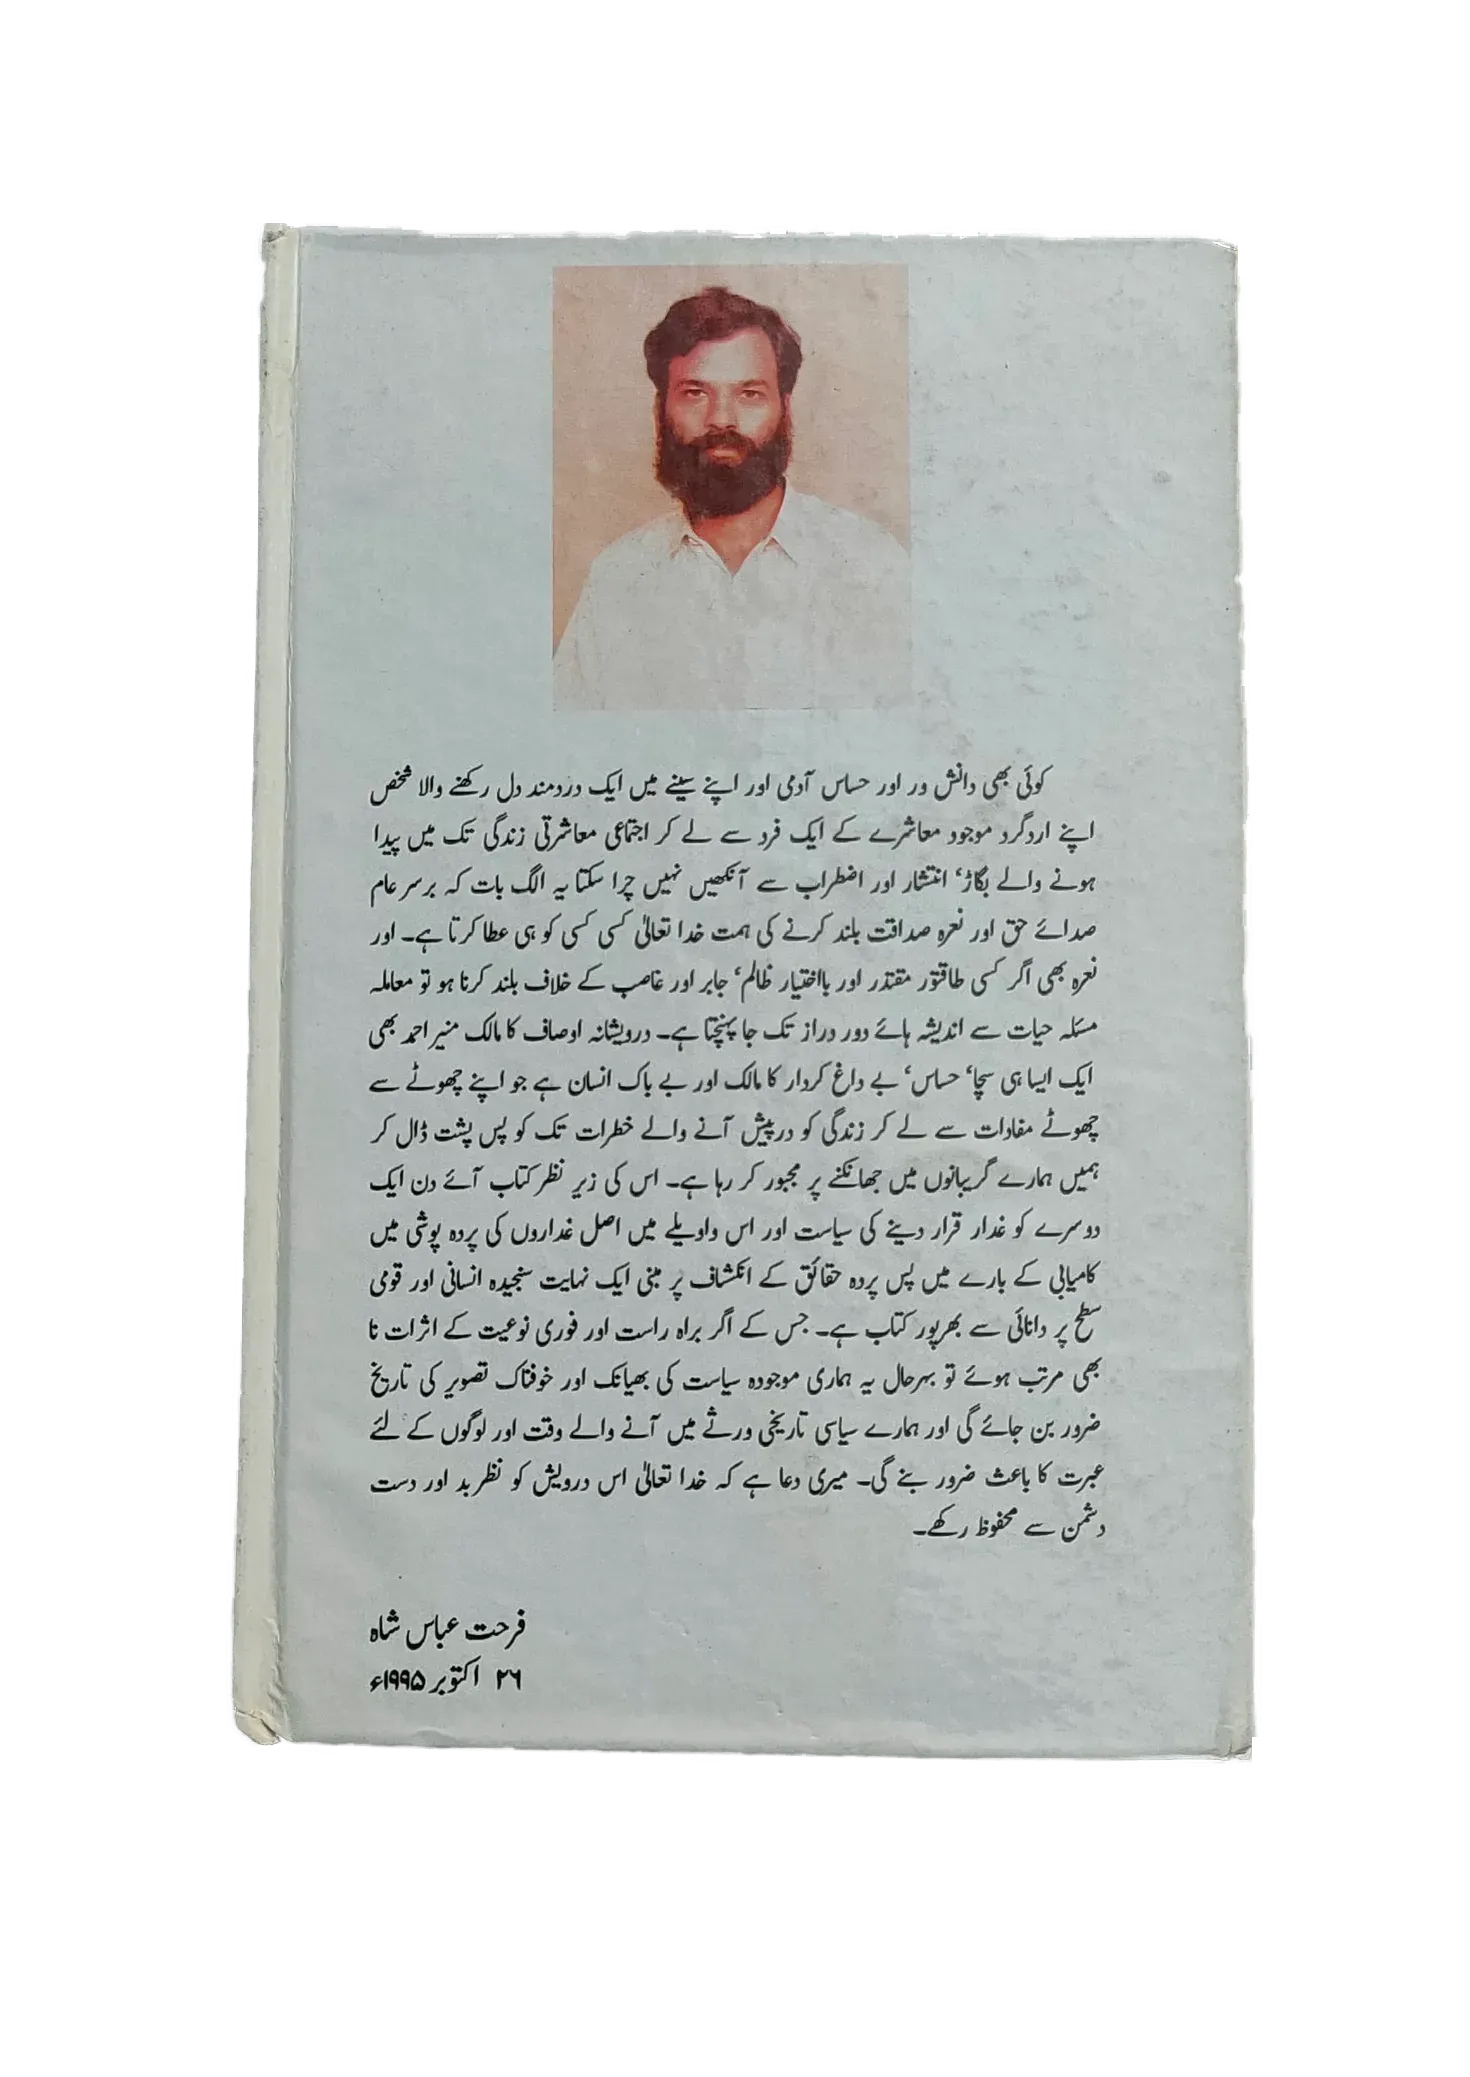 کوئی بھی دانش ور اور حساس آدمی اور اپنے سینے میں ایک دردمند دل رکھنے والا شخص
اپنے اردگرد موجود معاشرے کے ایک فرد سے لے کر اجتماعی معاشرتی زندگی تک میں پیدا
ہونے والے بگاڑ‘ انتشار اور اضطراب سے آنکھیں نہیں چرا سکتا یہ الگ بات کہ برسرعام
صدائے حق اور نعرہ صداقت بلند کرنے کی ہمت خدا تعالیٰ کسی کسی کو ہی عطا کرتا ہے۔ اور
نعرہ بھی اگر کسی طاقتور مقتدر اور بااختیار ظالم‘ جابر اور غاصب کے خلاف بلند کرنا ہو تو معاملہ
مسئلہ حیات سے اندیشہ ہائے دور دراز تک جا پہنچتا ہے۔ درویشانہ اوصاف کا مالک منیر احمد بھی
ایک ایسا ہی سچا‘ حساس‘ بے داغ کردار کا مالک اور بے باک انسان ہے جو اپنے چھوٹے سے
چھوٹے مفادات سے لے کر زندگی کو درپیش آنے والے خطرات تک کو پس پشت ڈال کر
ہمیں ہمارے گریبانوں میں جھانکنے پر مجبور کر رہا ہے۔ اس کی زیر نظر کتاب آئے دن ایک
دوسرے کو غدار قرار دینے کی سیاست اور اس واویلے میں اصل غداروں کی پردہ پوشی میں
کامیابی کے بارے میں پس پردہ حقائق کے انکشاف پر مبنی ایک نہایت سنجیدہ انسانی اور قومی
سطح پر دانائی سے بھرپور کتاب ہے۔ جس کے اگر براہ راست اور فوری نوعیت کے اثرات نا
بھی مرتب ہوئے تو بہرحال یہ ہماری موجودہ سیاست کی بھیانک اور خوفناک تصویر کی تاریخ
ضرور بن جائے گی اور ہمارے سیاسی تاریخی ورثے میں آنے والے وقت اور لوگوں کے لئے
عبرت کا باعث ضرور بنے گی۔ میری دعا ہے کہ خدا تعالیٰ اس درویش کو نظر بد اور دست
دشمن سے محفوظ رکھے۔
فرحت عباس شاہ
۲۶ اکتوبر ۱۹۹۵ء